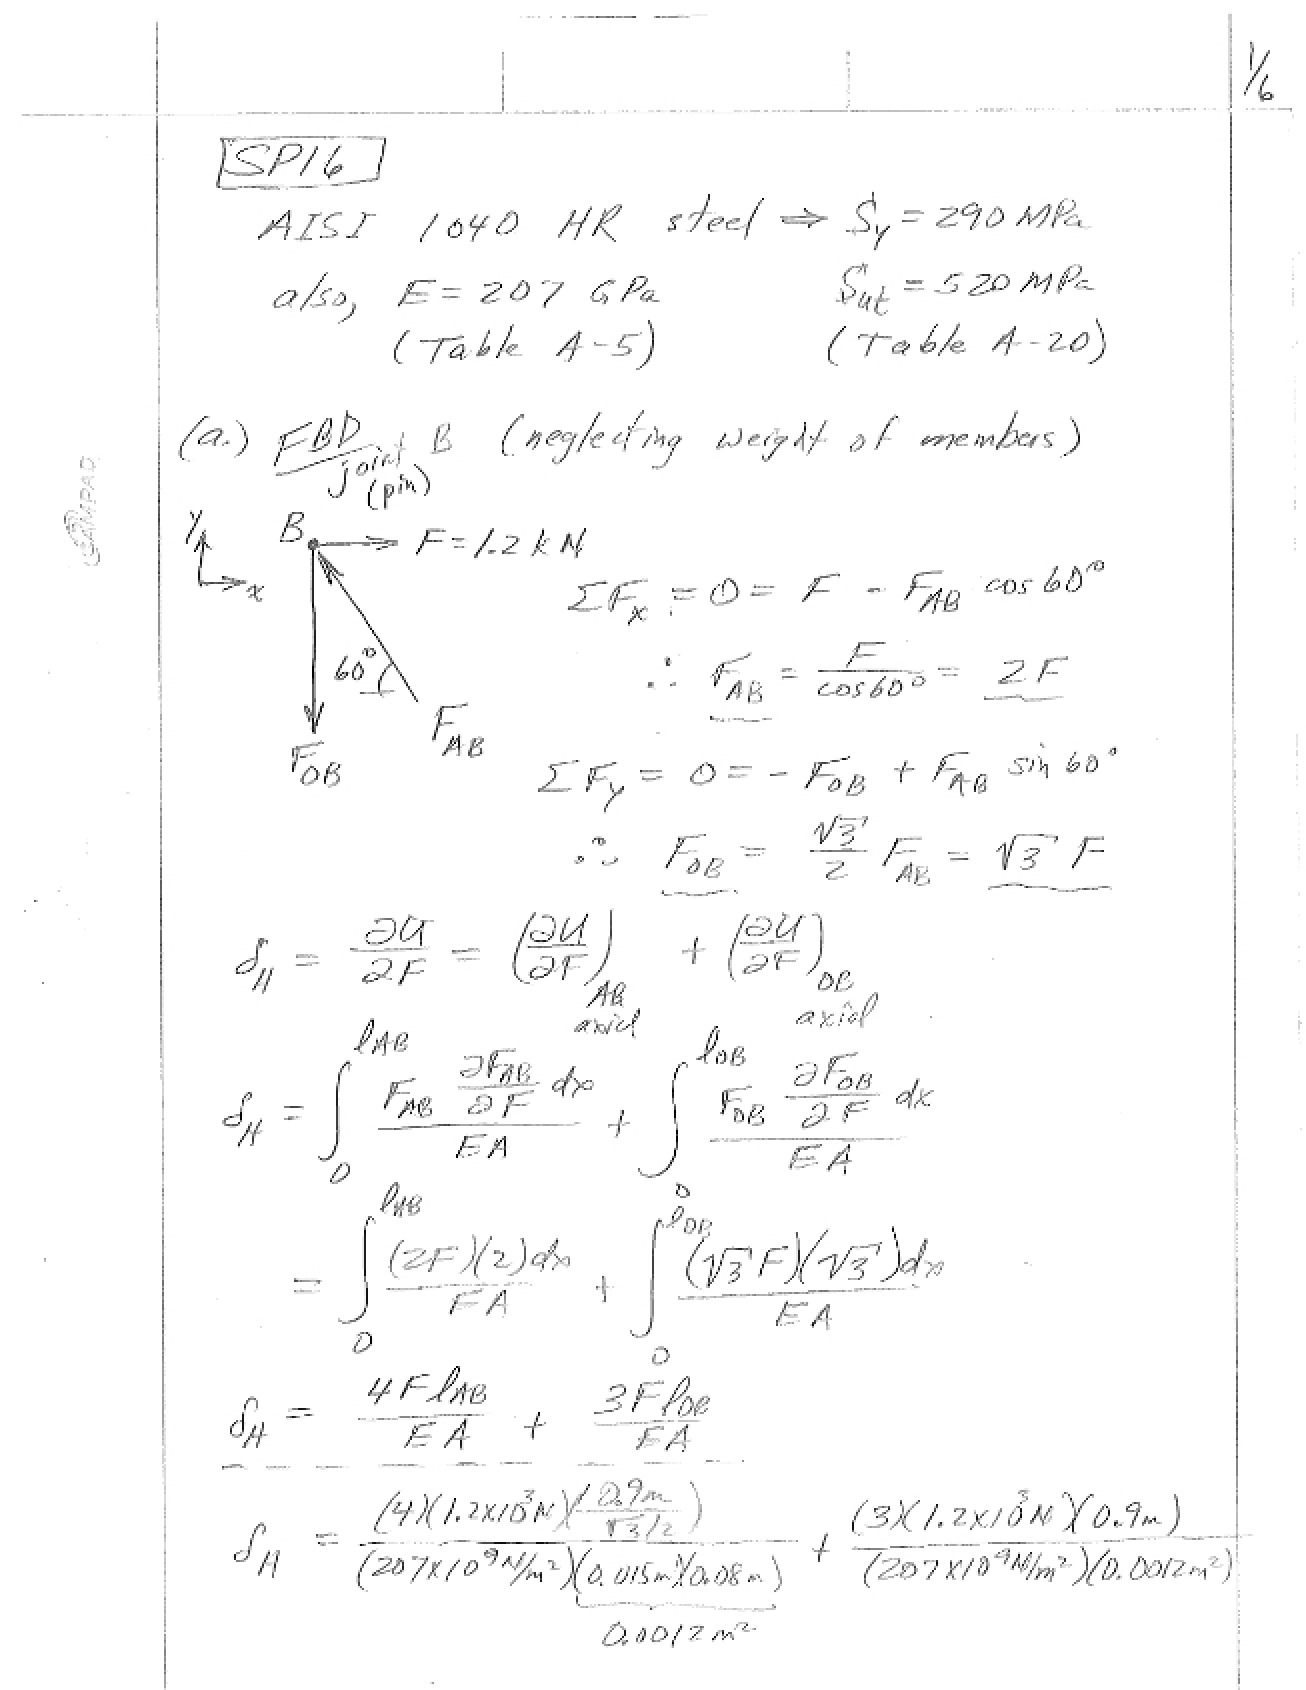 1/6
SP16
AISI 1040 HR steel ⇒ S_y = 290 MPa
also, E = 207 GPa S_ut = 520 MPa
(Table A-5) (Table A-20)
(a.) FBD/joint (pin) B (neglecting weight of members)
CAMPAD
y
B F = 1.2 kN
x
ΣF_x = 0 = F - F_AB cos 60°
60°
∴ F_AB = F/cos 60° = 2F
F_AB
F_OB
ΣF_y = 0 = - F_OB + F_AB sin 60°
∴ F_OB = √3/2 F_AB = √3 F
δ_H = ∂U/∂F = (∂U/∂F)_AB axial + (∂U/∂F)_OB axial
δ_H = ∫_0^l_AB F_AB ∂F_AB/∂F dx / EA + ∫_0^l_OB F_OB ∂F_OB/∂F dx / EA
= ∫_0^l_AB (2F)(2)dx / EA + ∫_0^l_OB (√3 F)(√3)dx / EA
δ_H = 4Fl_AB / EA + 3Fl_OB / EA
δ_H = (4)(1.2x10³N)(0.9m / √3/2) / (207x10⁹N/m²)(0.015m)(0.08m) + (3)(1.2x10³N)(0.9m) / (207x10⁹N/m²)(0.0012m²)
0.0012m²